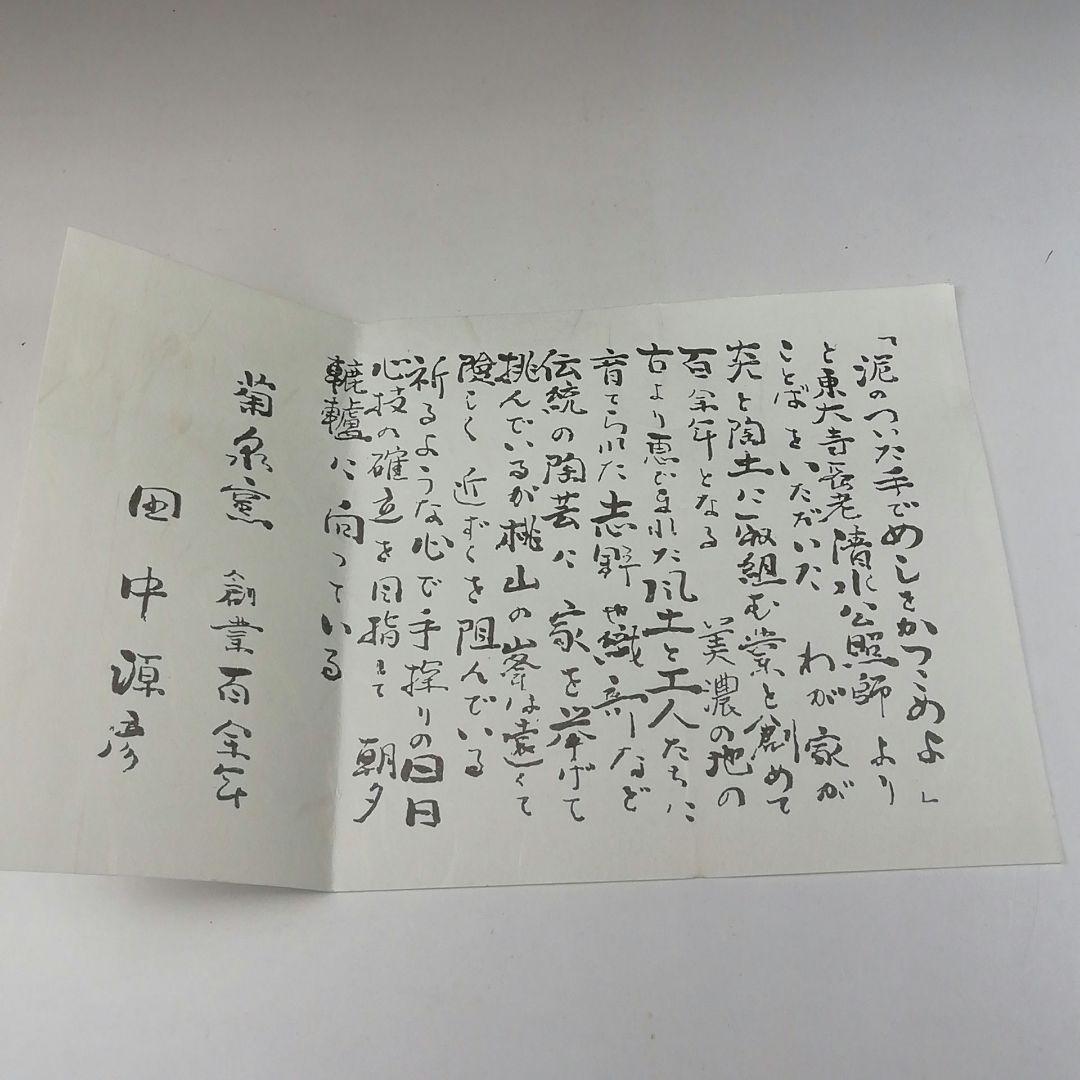 「泥のついた手でめしをかっこめよ」
と東大寺長老清水公照師より
ことばをいただいた わが家が
炎と陶土に取組む業を創めて
百余年となる 美濃の地の
古より恵まれた風土と工人たちに
育てられた志野 織部など
伝統の陶芸に 家を挙げて
挑んでいるが桃山の峯は遠くて
険しく 近ずくを阻んでいる
祈るような心で手探りの日日
心技の確立を目指して 朝夕
轆轤に向っている
菊泉窯 創業百余年
田中源彦